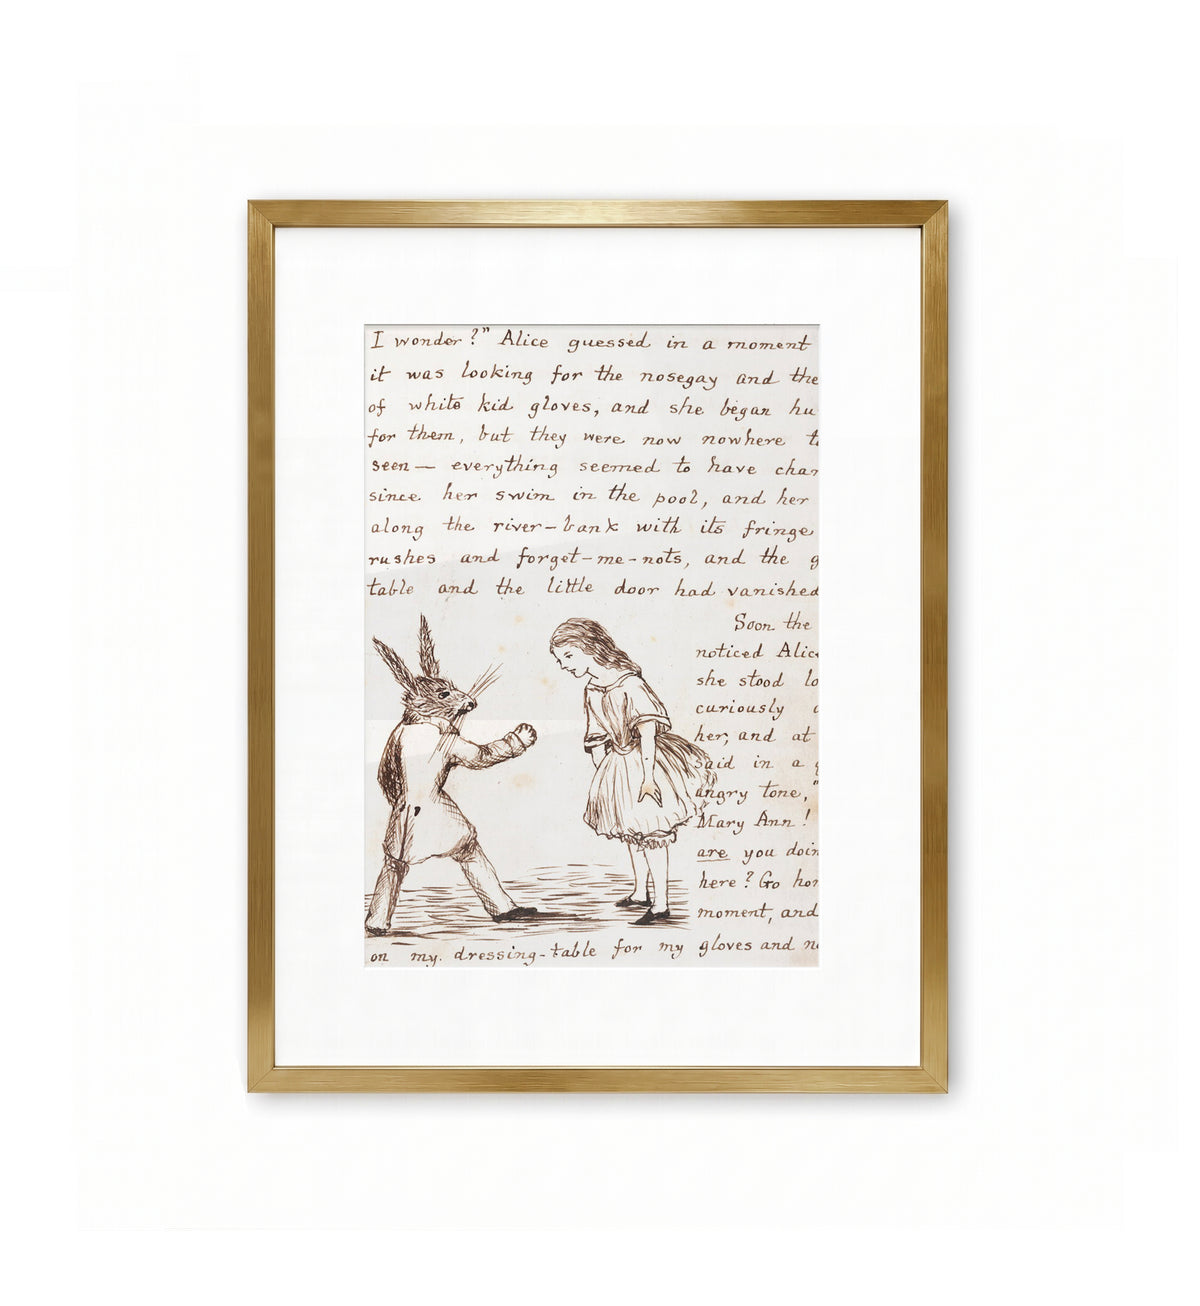 I wonder?" Alice guessed in a moment
it was looking for the nosegay and the
of white kid gloves, and she began hu
for them, but they were now nowhere t
seen — everything seemed to have chan
since her swim in the pool, and her
along the river-bank with its fringe
rushes and forget-me-nots, and the g
table and the little door had vanished
Soon the
noticed Alice
she stood lo
curiously a
her, and at
said in a q
angry tone, "
Mary Ann!
are you doin
here? Go hom
moment, and
on my dressing-table for my gloves and no